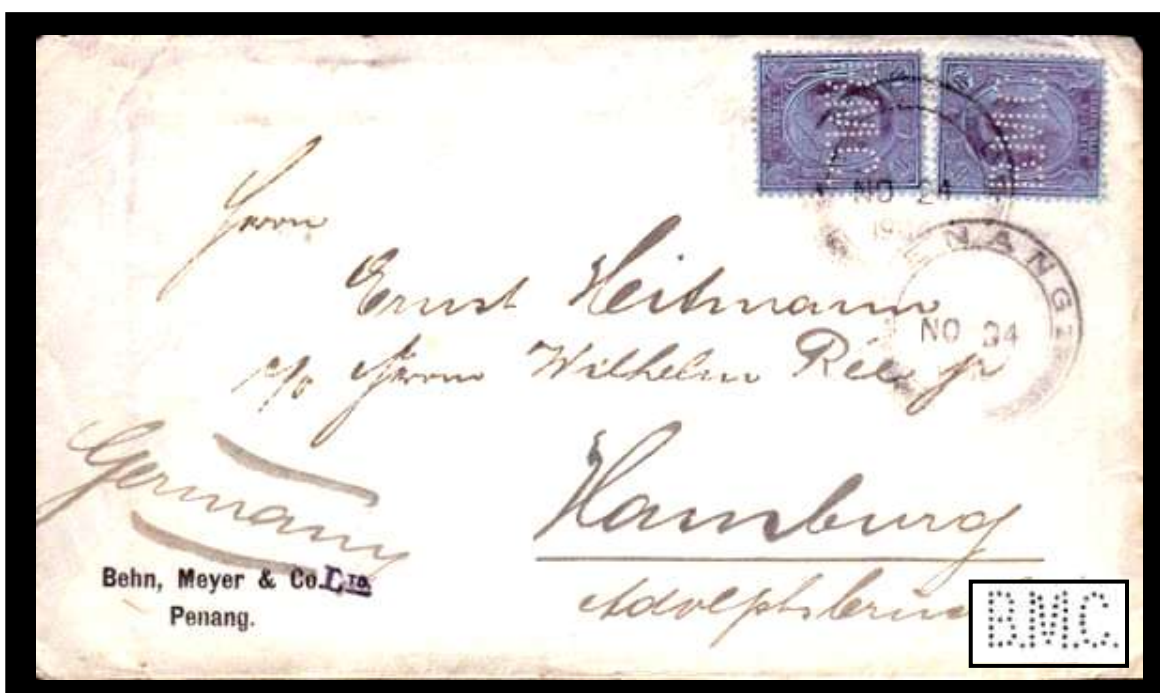 NO 24
19
NANG
NO 24
Herrn
Ernst Heitmann
c/o Herrn Wilhelm Rée jr
Hamburg
Germany
Behn, Meyer & Co. LTD.
Penang.
B.M.C.